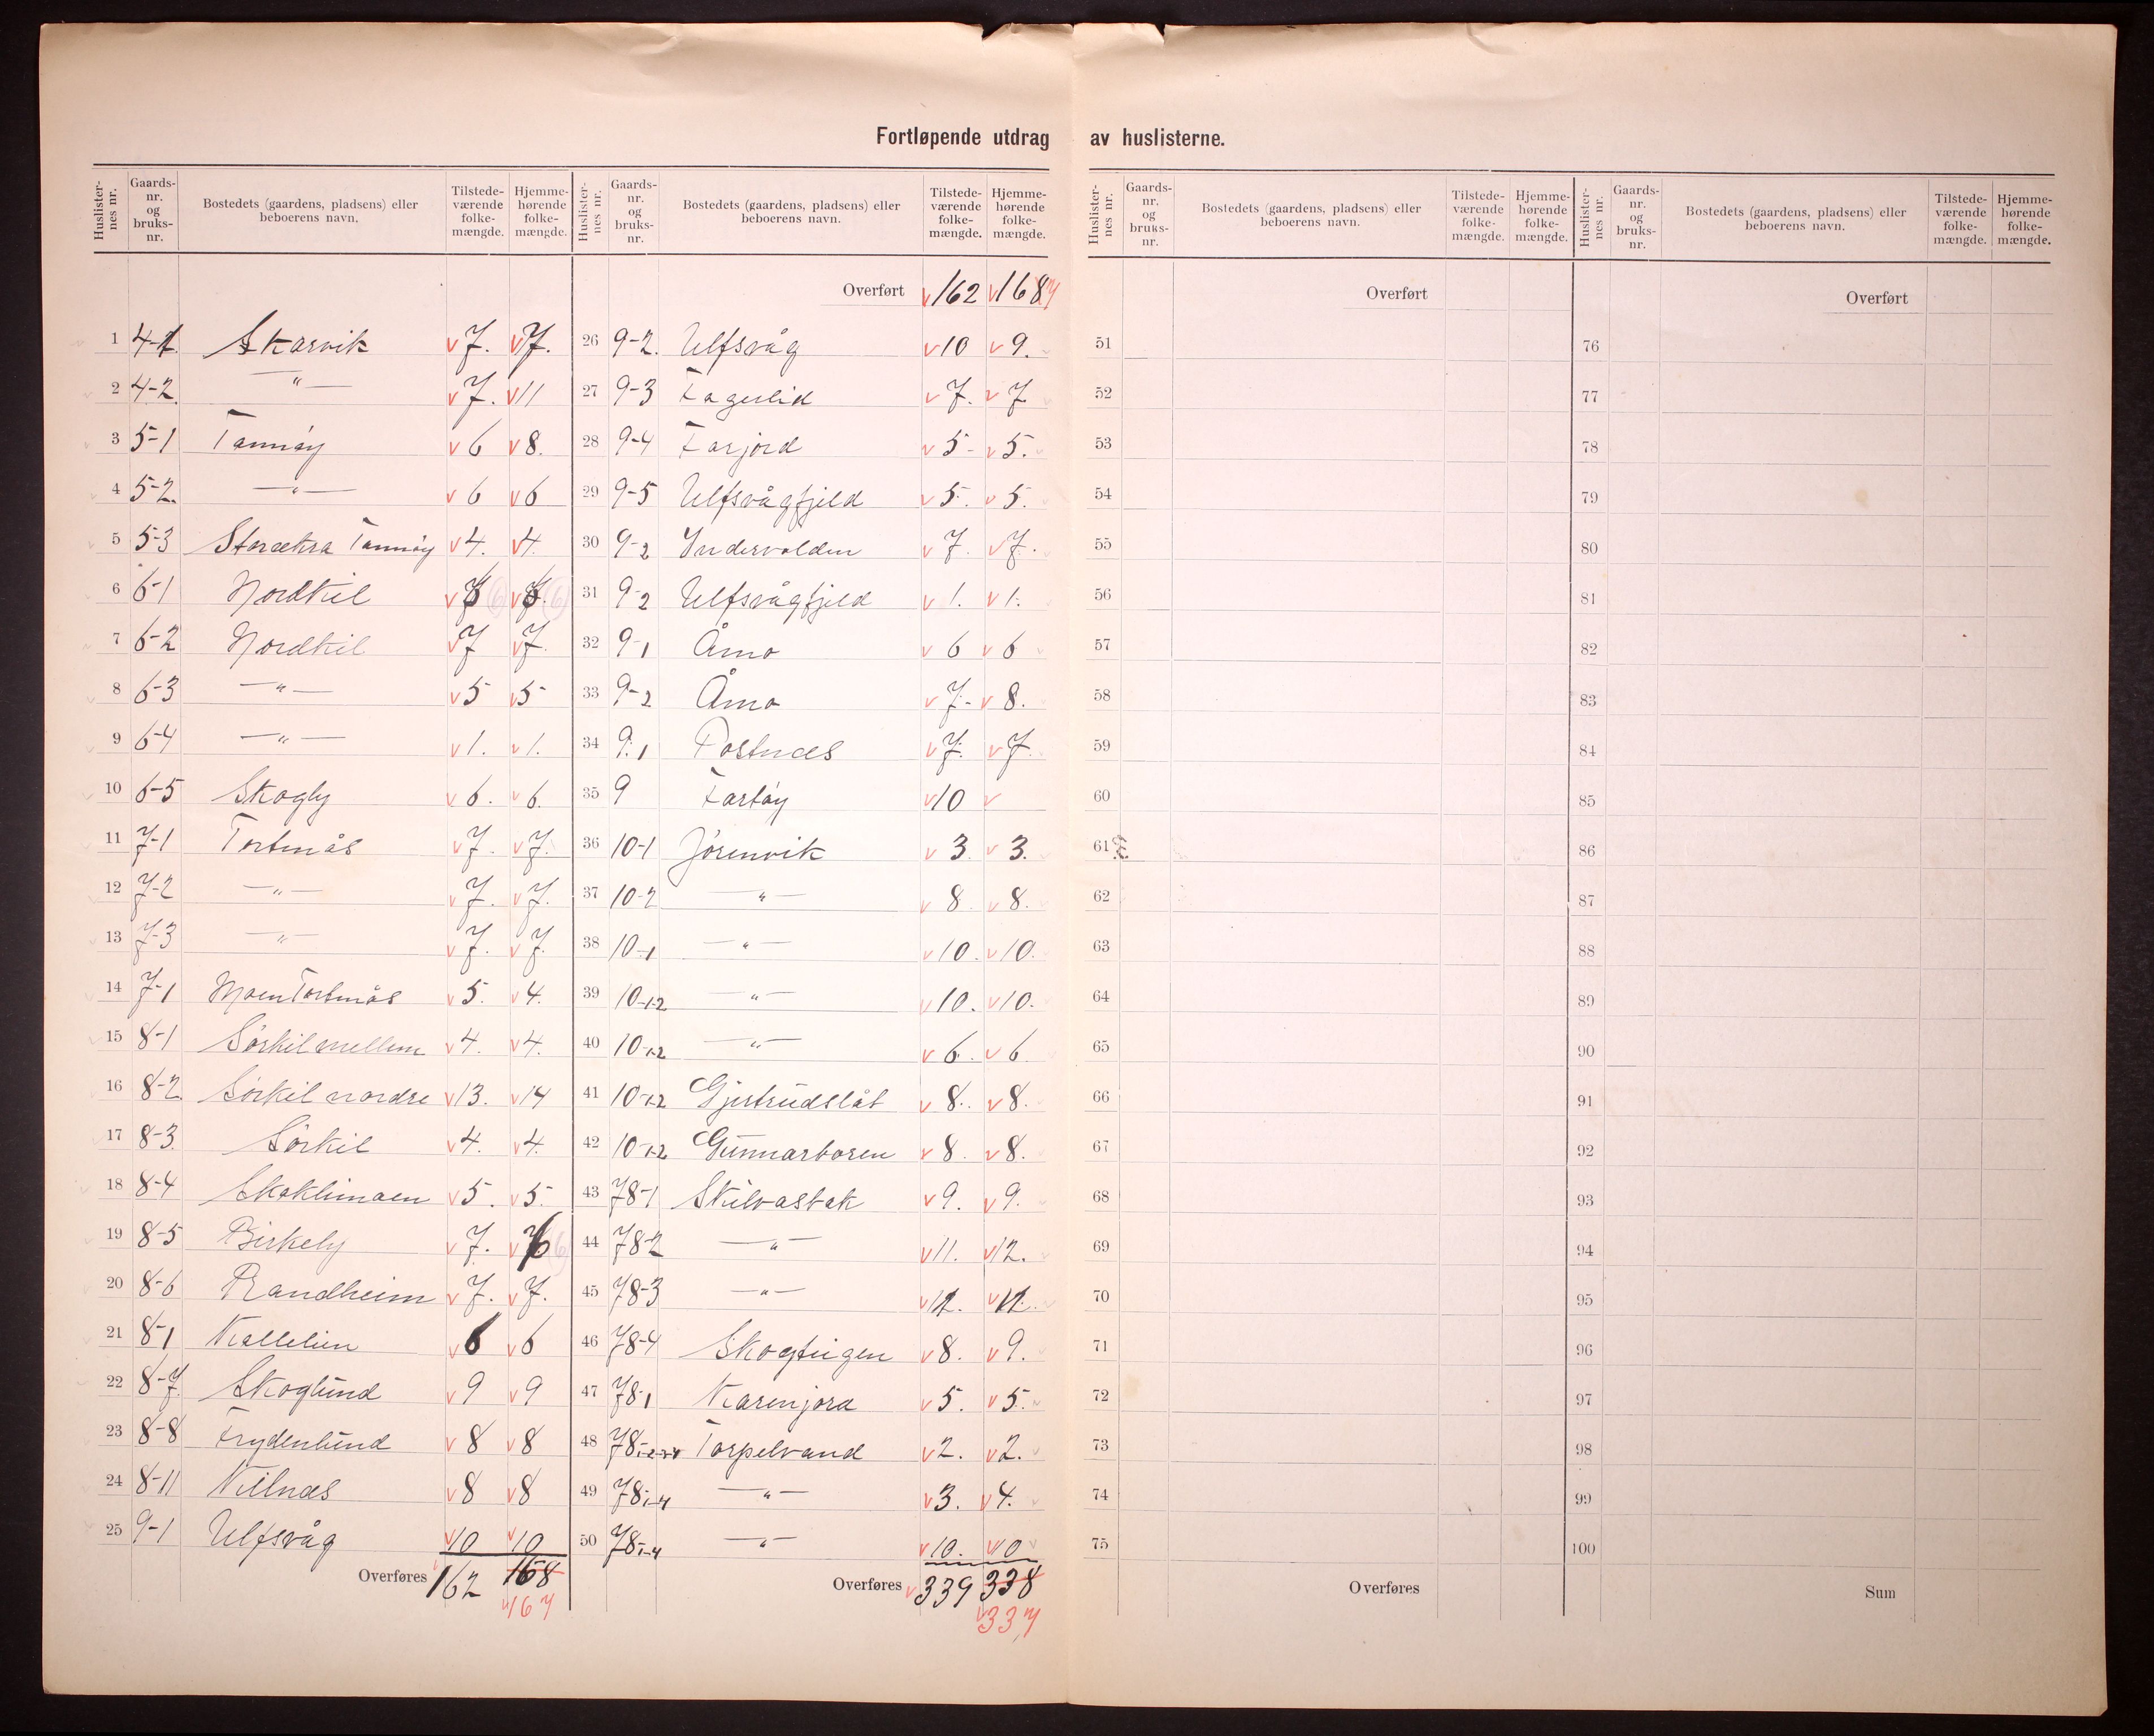 Fortløpende utdrag av huslisterne.
Huslister-nes nr. Gaards-nr. og bruks-nr. Bostedets (gaardens, pladsens) eller beboerens navn. Tilstede-værende folke-mængde. Hjemme-hørende folke-mængde.
1 4-1 Skarvik 7. 7.
2 4-2. —"— 7. 11
3 5-1 Tannøy 6 8.
4 5-2. —"— 6 6
5 5-3 Storeetra Tannøy 4. 4.
6 6-1 Nordkil (6) (6)
7 6-2 Nordkil 7 7.
8 6-3 —"— 5 5
9 6-4 —"— 1. 1.
10 6-5 Skogly 6. 6.
11 7-1 Tortnås 7. 7.
12 7-2 —"— 7. 7.
13 7-3 —"— 7. 7.
14 7-1 Moen Tortnås 5. 4.
15 8-1 Sörkil mellem 4. 4.
16 8-2 Sörkil nordre 13. 14
17 8-3. Sörkil 4. 4.
18 8-4 Skoklimoen 5. 5.
19 8-5 Birkely 7. 6 (6)
20 8-6 Randheim 7. 7.
21 8-1 Kallelien 6 6
22 8-7 Skoglund 9 9
23 8-8 Frydenlund 8 8
24 8-11 Kilnæs 8 8
25 9-1 Ulfsvåg 10 10
Overføres 162 168
167
Huslister-nes nr. Gaards-nr. og bruks-nr. Bostedets (gaardens, pladsens) eller beboerens navn. Tilstede-værende folke-mængde. Hjemme-hørende folke-mængde.
Overført 162 168 7
26 9-2. Ulfsvåg 10 9.
27 9-3 Fagerlid 7. 7
28 9-4 Farjord 5- 5.
29 9-5 Ulfsvågfjeld 5. 5.
30 9-2 Indervolden 7. 7.
31 9-2 Ulfsvågfjeld 1. 1.
32 9-1 Åmo 6 6
33 9-2 Åmo 7.- 8.
34 9.1 Postnæs 7. 7.
35 9 Fartøy 10
36 10-1 Jörenvik 3. 3.
37 10-2 —"— 8. 8.
38 10-1 —"— 10. 10.
39 10-1-2 —"— 10. 10.
40 10-1-2 —"— 6. 6.
41 10-1-2 Gjertrudslåt 8. 8.
42 10-1-2 Gunnarbosen 8. 8.
43 78-1 Skilvasbak 9. 9.
44 78-2 —"— 11. 12.
45 78-3 —"— 11. 11.
46 78-4 Skogtuigen 8. 9.
47 78-1 Karenjord 5. 5.
48 78-1-2-3-4 Torpelvand 2. 2.
49 78-1-4 —"— 3. 4.
50 78-1-4 —"— 10. 10
Overføres 339 338
337
Huslister-nes nr. Gaards-nr. og bruks-nr. Bostedets (gaardens, pladsens) eller beboerens navn. Tilstede-værende folke-mængde. Hjemme-hørende folke-mængde.
Overført
51
52
53
54
55
56
57
58
59
60
61
62
63
64
65
66
67
68
69
70
71
72
73
74
75
Overføres
Huslister-nes nr. Gaards-nr. og bruks-nr. Bostedets (gaardens, pladsens) eller beboerens navn. Tilstede-værende folke-mængde. Hjemme-hørende folke-mængde.
Overført
76
77
78
79
80
81
82
83
84
85
86
87
88
89
90
91
92
93
94
95
96
97
98
99
100
Sum